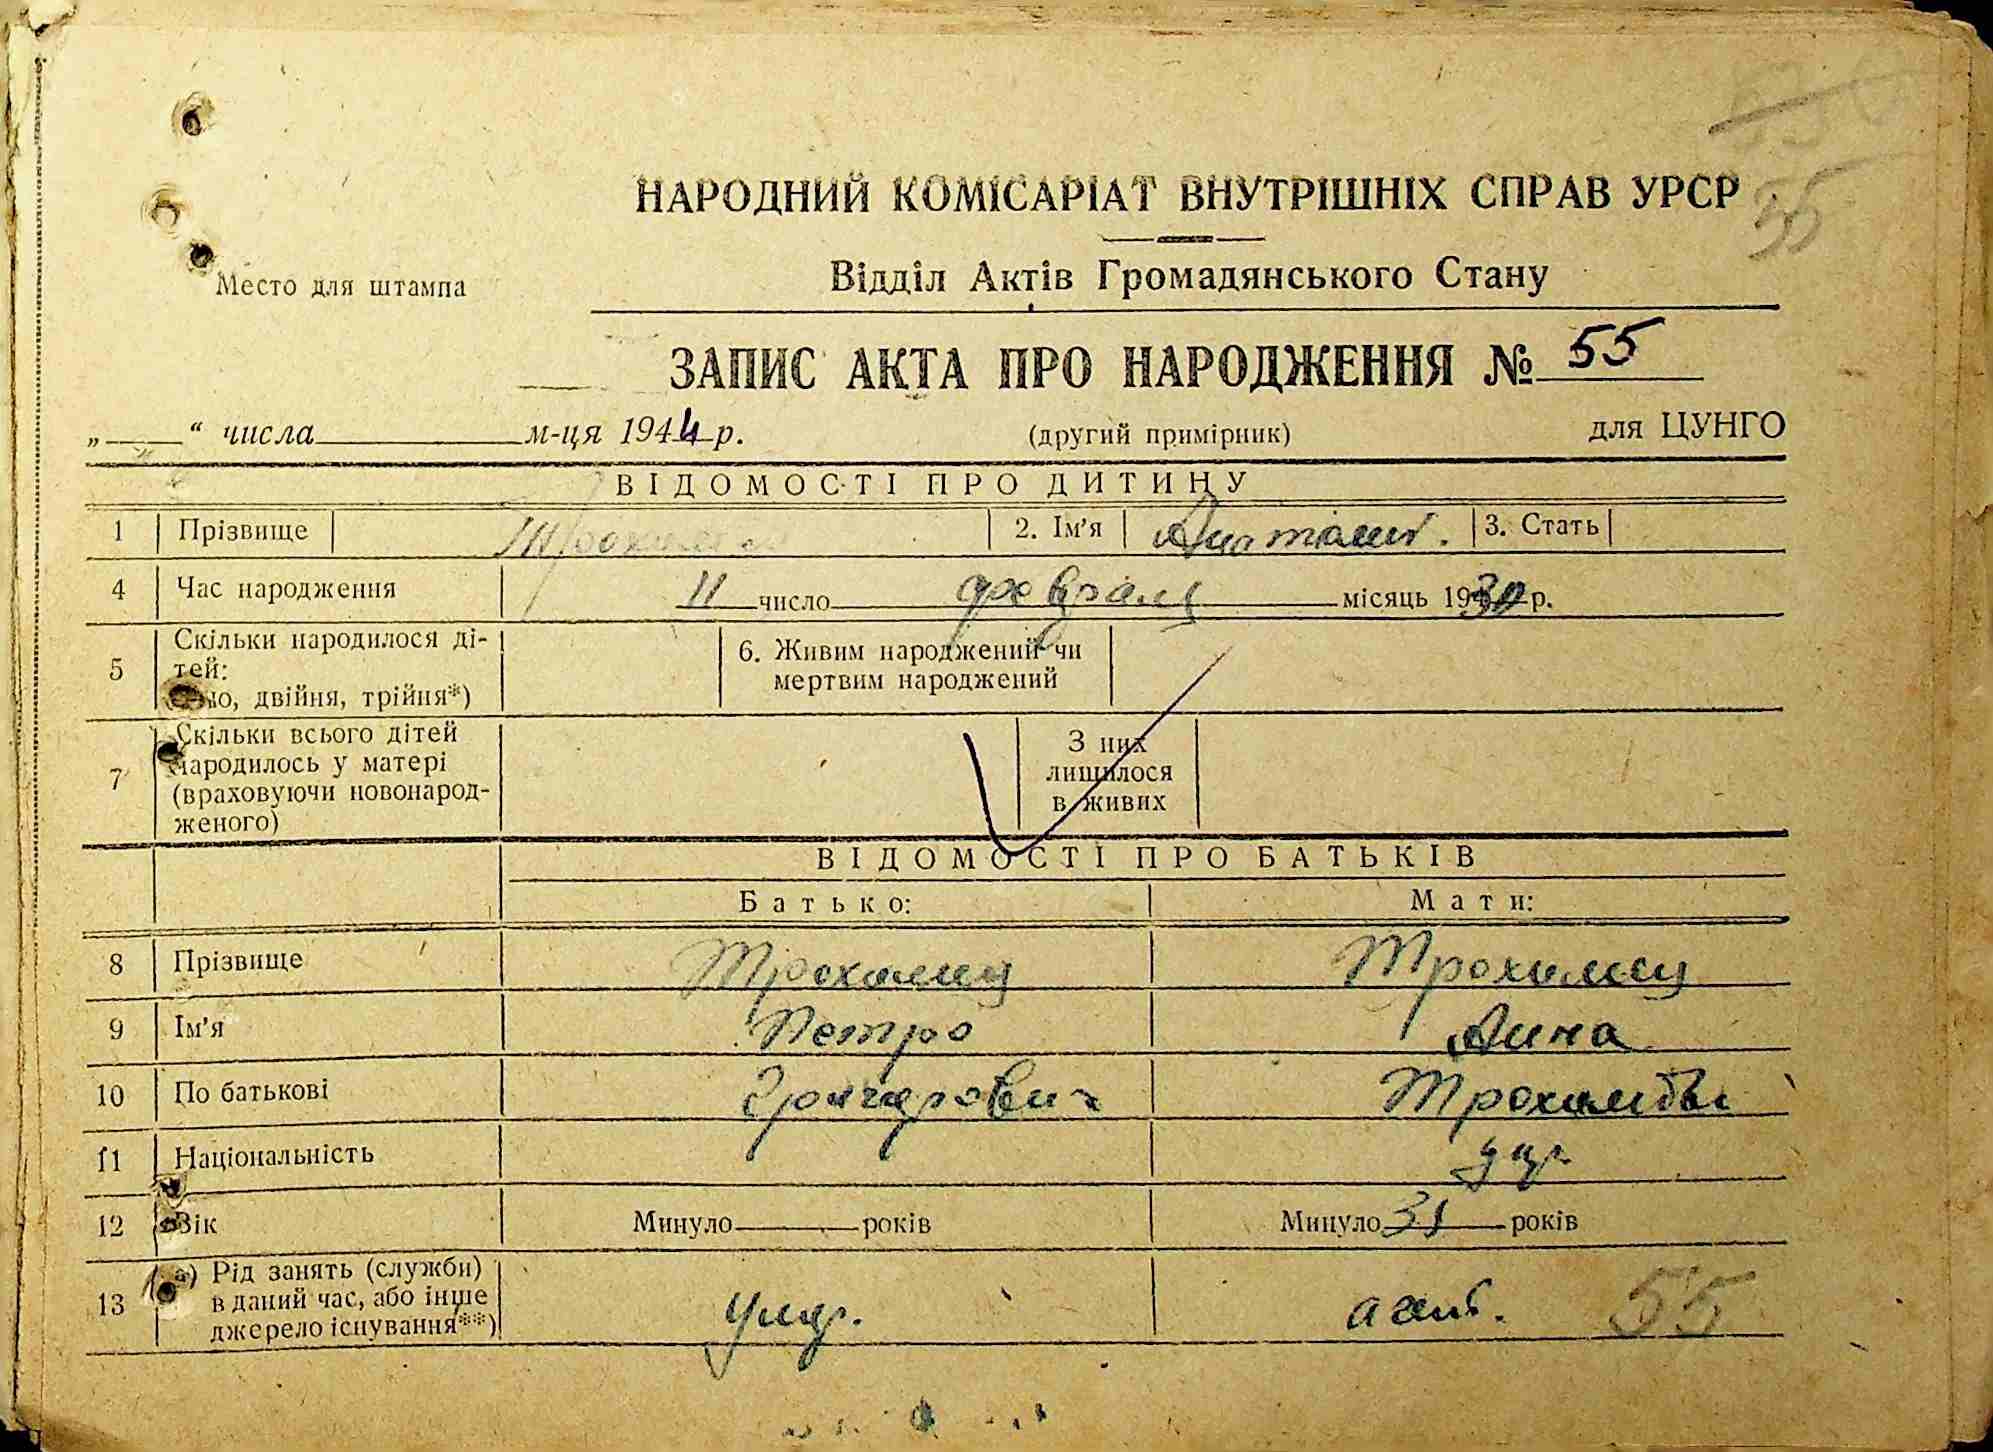 55
НАРОДНИЙ КОМІСАРІАТ ВНУТРІШНІХ СПРАВ УРСР
Место для штампа
Відділ Актів Громадянського Стану
ЗАПИС АКТА ПРО НАРОДЖЕННЯ № 55
„ “ числа м-ця 1944 р. (другий примірник) для ЦУНГО
ВІДОМОСТІ ПРО ДИТИНУ
1 Прізвище 2. Ім'я Анатолий. 3. Стать
4 Час народження 11 число февраля місяць 1930 р.
5 Скільки народилося ді-
тей:
двійня, трійня*)
6. Живим народжений чи
мертвим народжений
7 Скільки всього дітей
народилось у матері
(враховуючи новонарод-
женого)
З них
лишилося
в живих
ВІДОМОСТІ ПРО БАТЬКІВ
Батько: Мати:
8 Прізвище
9 Ім'я Петро Анна
10 По батькові
11 Національність укр.
12 Вік Минуло років Минуло 31 років
13 а) Рід занять (служби)
в даний час, або інше
джерело існування**)
55